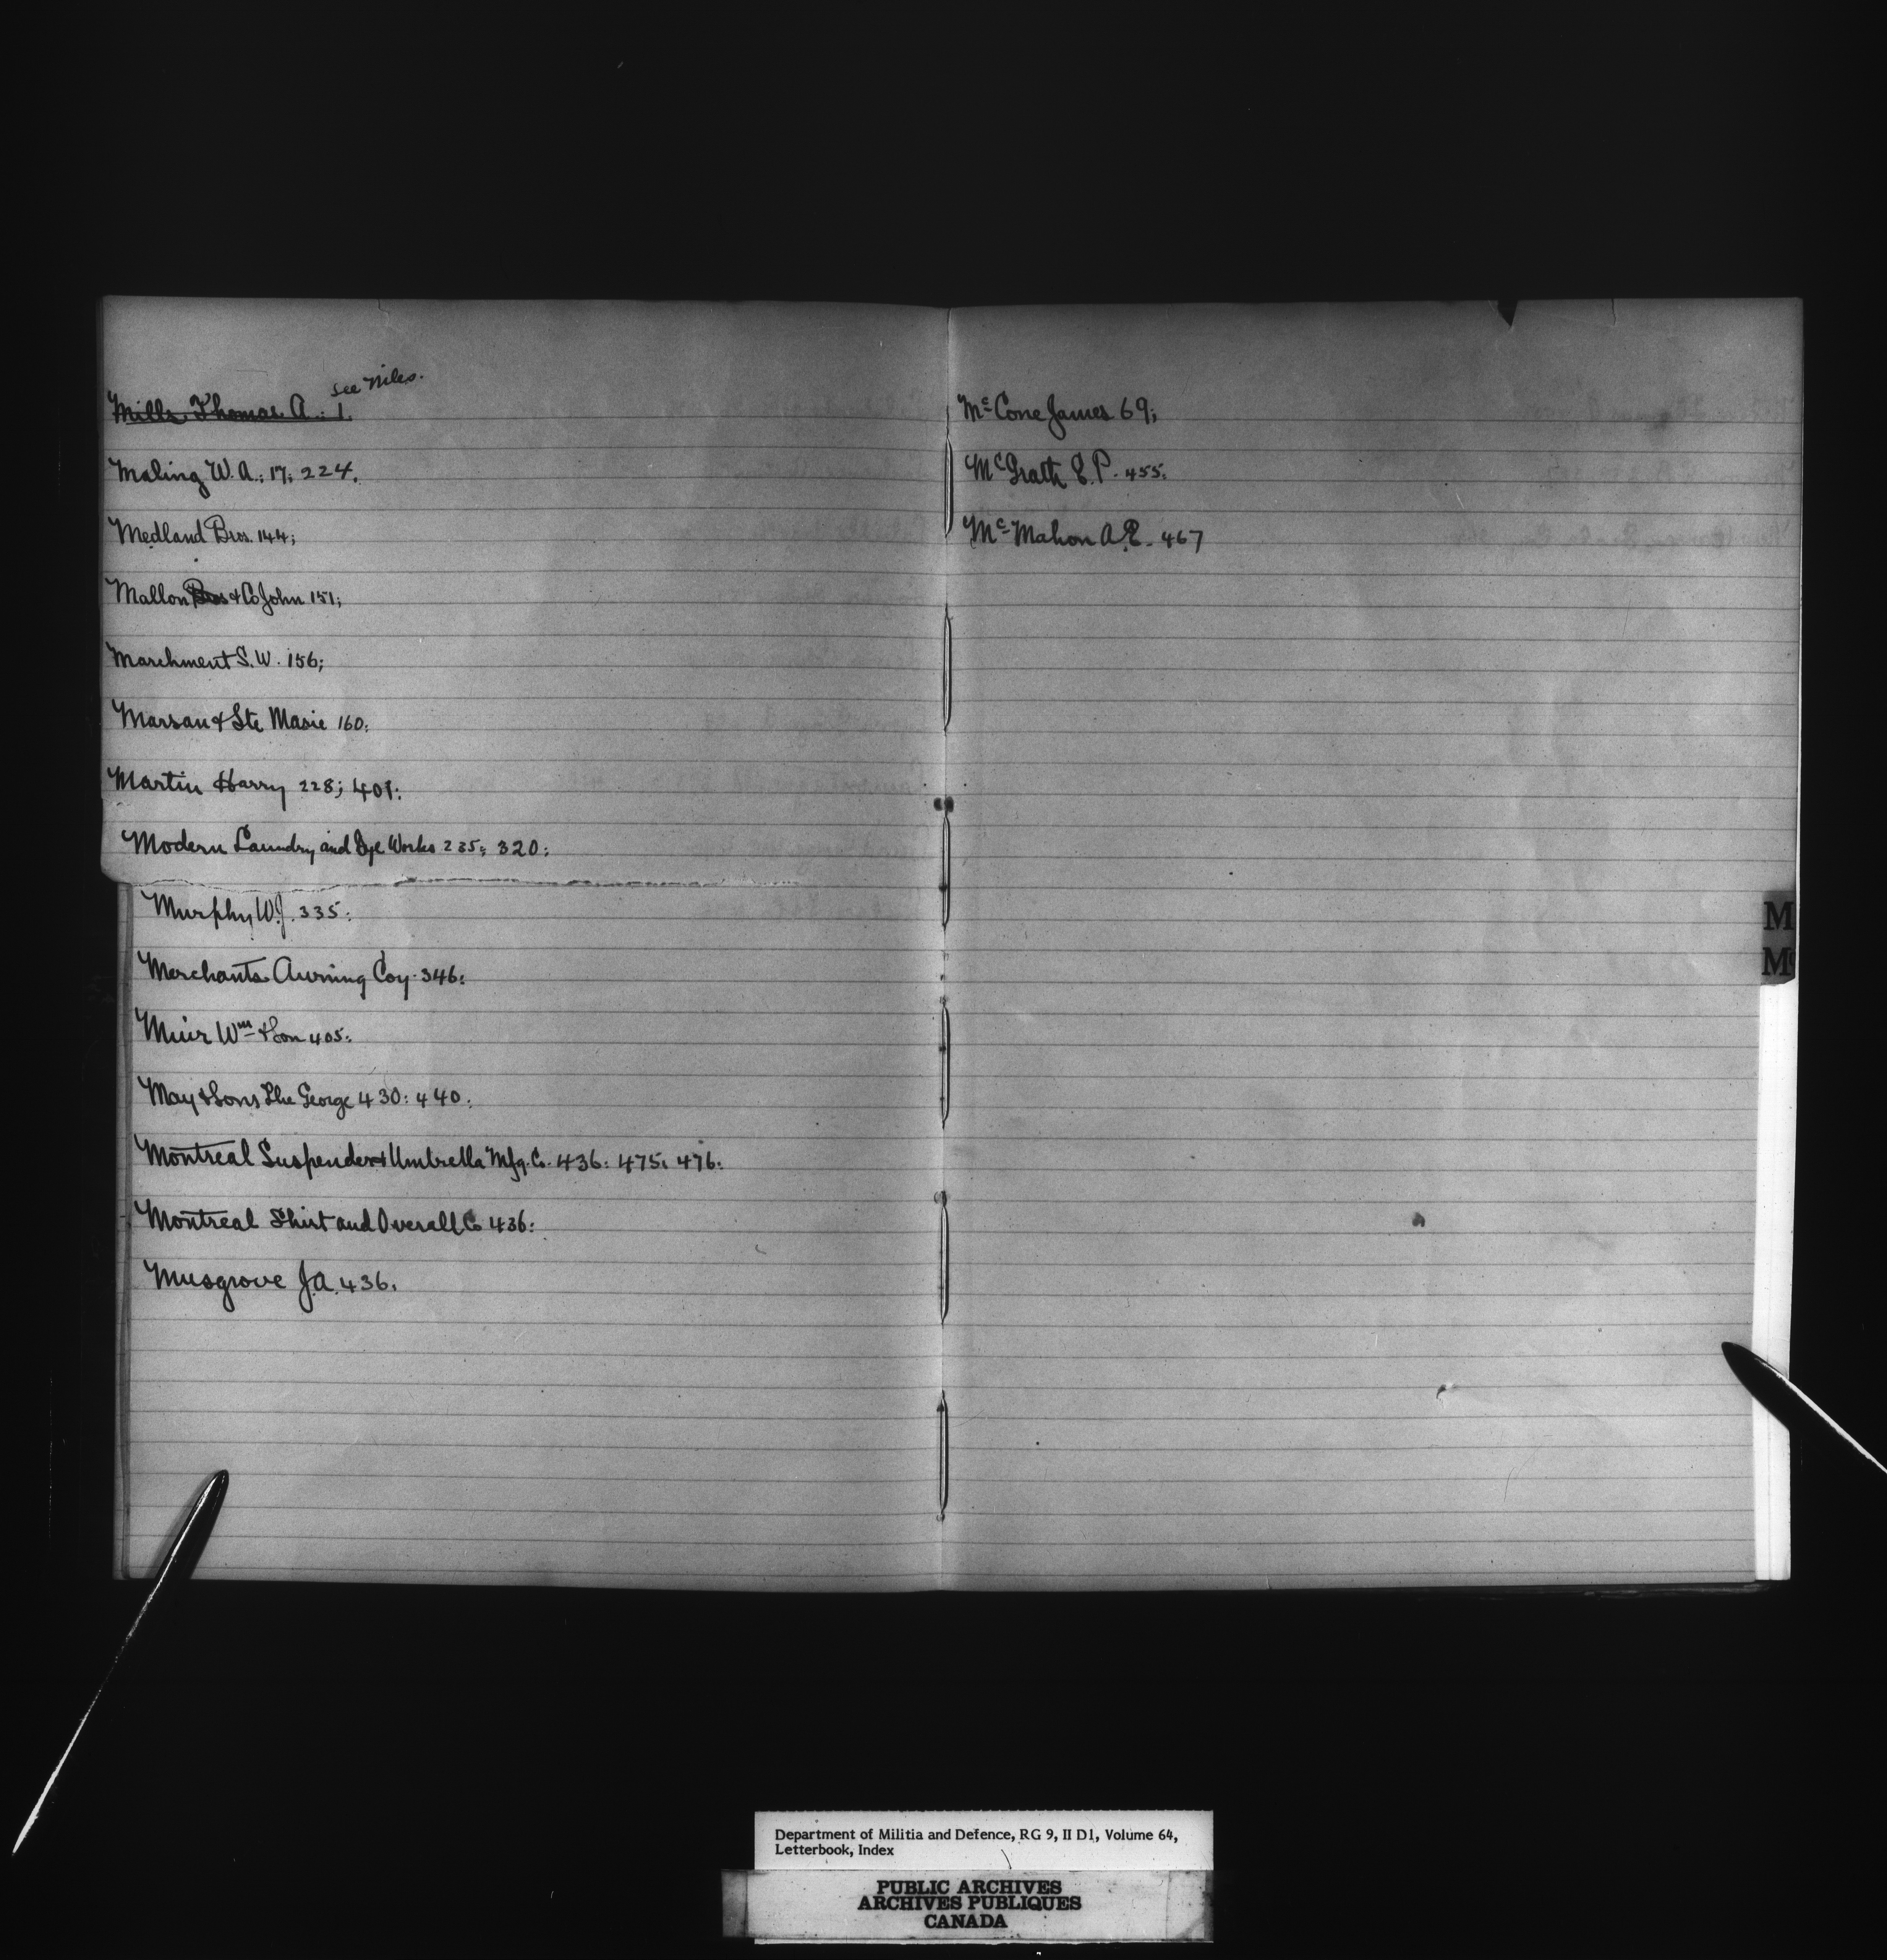 See Niles.
Mills Thomas A.: 1.
Maling W. A.: 17: 224.
Medland Bros. 144;
Mallon Bros & Co John 151;
Marchment S. W. 156;
Marsan & Ste Marie 160:
Martin Harry 228; 401:
Modern Laundry and Dye Works 235: 320:
Murphy W. J. 335:
Merchants Awning Coy. 346:
Muir Wm & Son 405:
May & Sons The George 430: 440:
Montreal Suspender & Umbrella Mfg. Co. 436: 475: 476:
Montreal Shirt and Overall Co 436:
Musgrove J. A. 436.
Mc Cone James 69;
McGrath E. P. 455.
Mc Mahon A. E. 467
M
Mc
Department of Militia and Defence, RG 9, II D1, Volume 64,
Letterbook, Index
PUBLIC ARCHIVES
ARCHIVES PUBLIQUES
CANADA